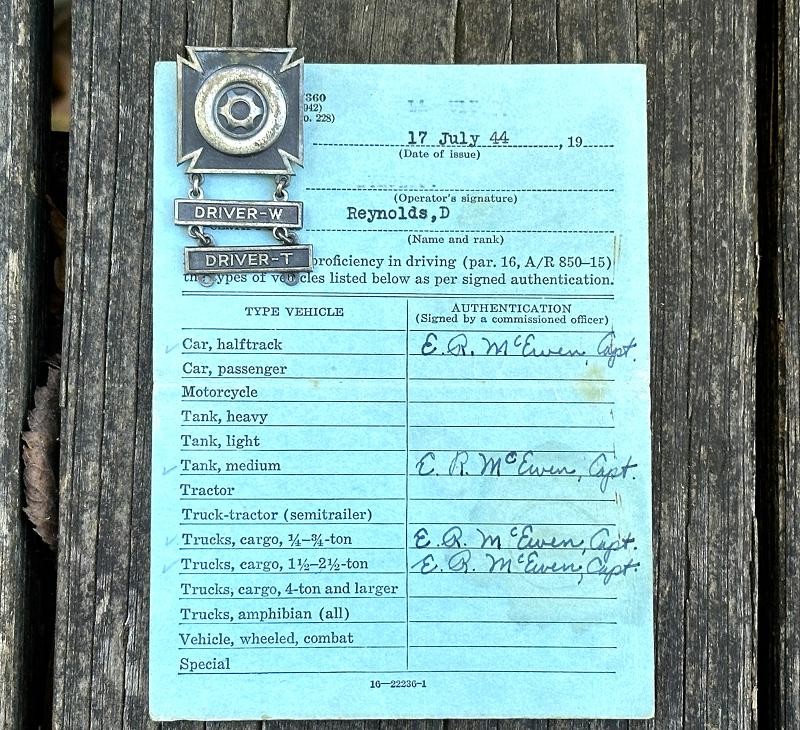 360
942)
o. 228)
17 July 44, 19
(Date of issue)
(Operator's signature)
Reynolds,D
(Name and rank)
DRIVER-W
DRIVER-T
proficiency in driving (par. 16, A/R 850–15)
the types of vehicles listed below as per signed authentication.
TYPE VEHICLE AUTHENTICATION
(Signed by a commissioned officer)
Car, halftrack E. R. McEwen, Capt.
Car, passenger
Motorcycle
Tank, heavy
Tank, light
Tank, medium E. R. McEwen, Capt.
Tractor
Truck-tractor (semitrailer)
Trucks, cargo, ¼–¾-ton E. R. McEwen, Capt.
Trucks, cargo, 1½–2½-ton E. R. McEwen, Capt.
Trucks, cargo, 4-ton and larger
Trucks, amphibian (all)
Vehicle, wheeled, combat
Special
16—22236-1